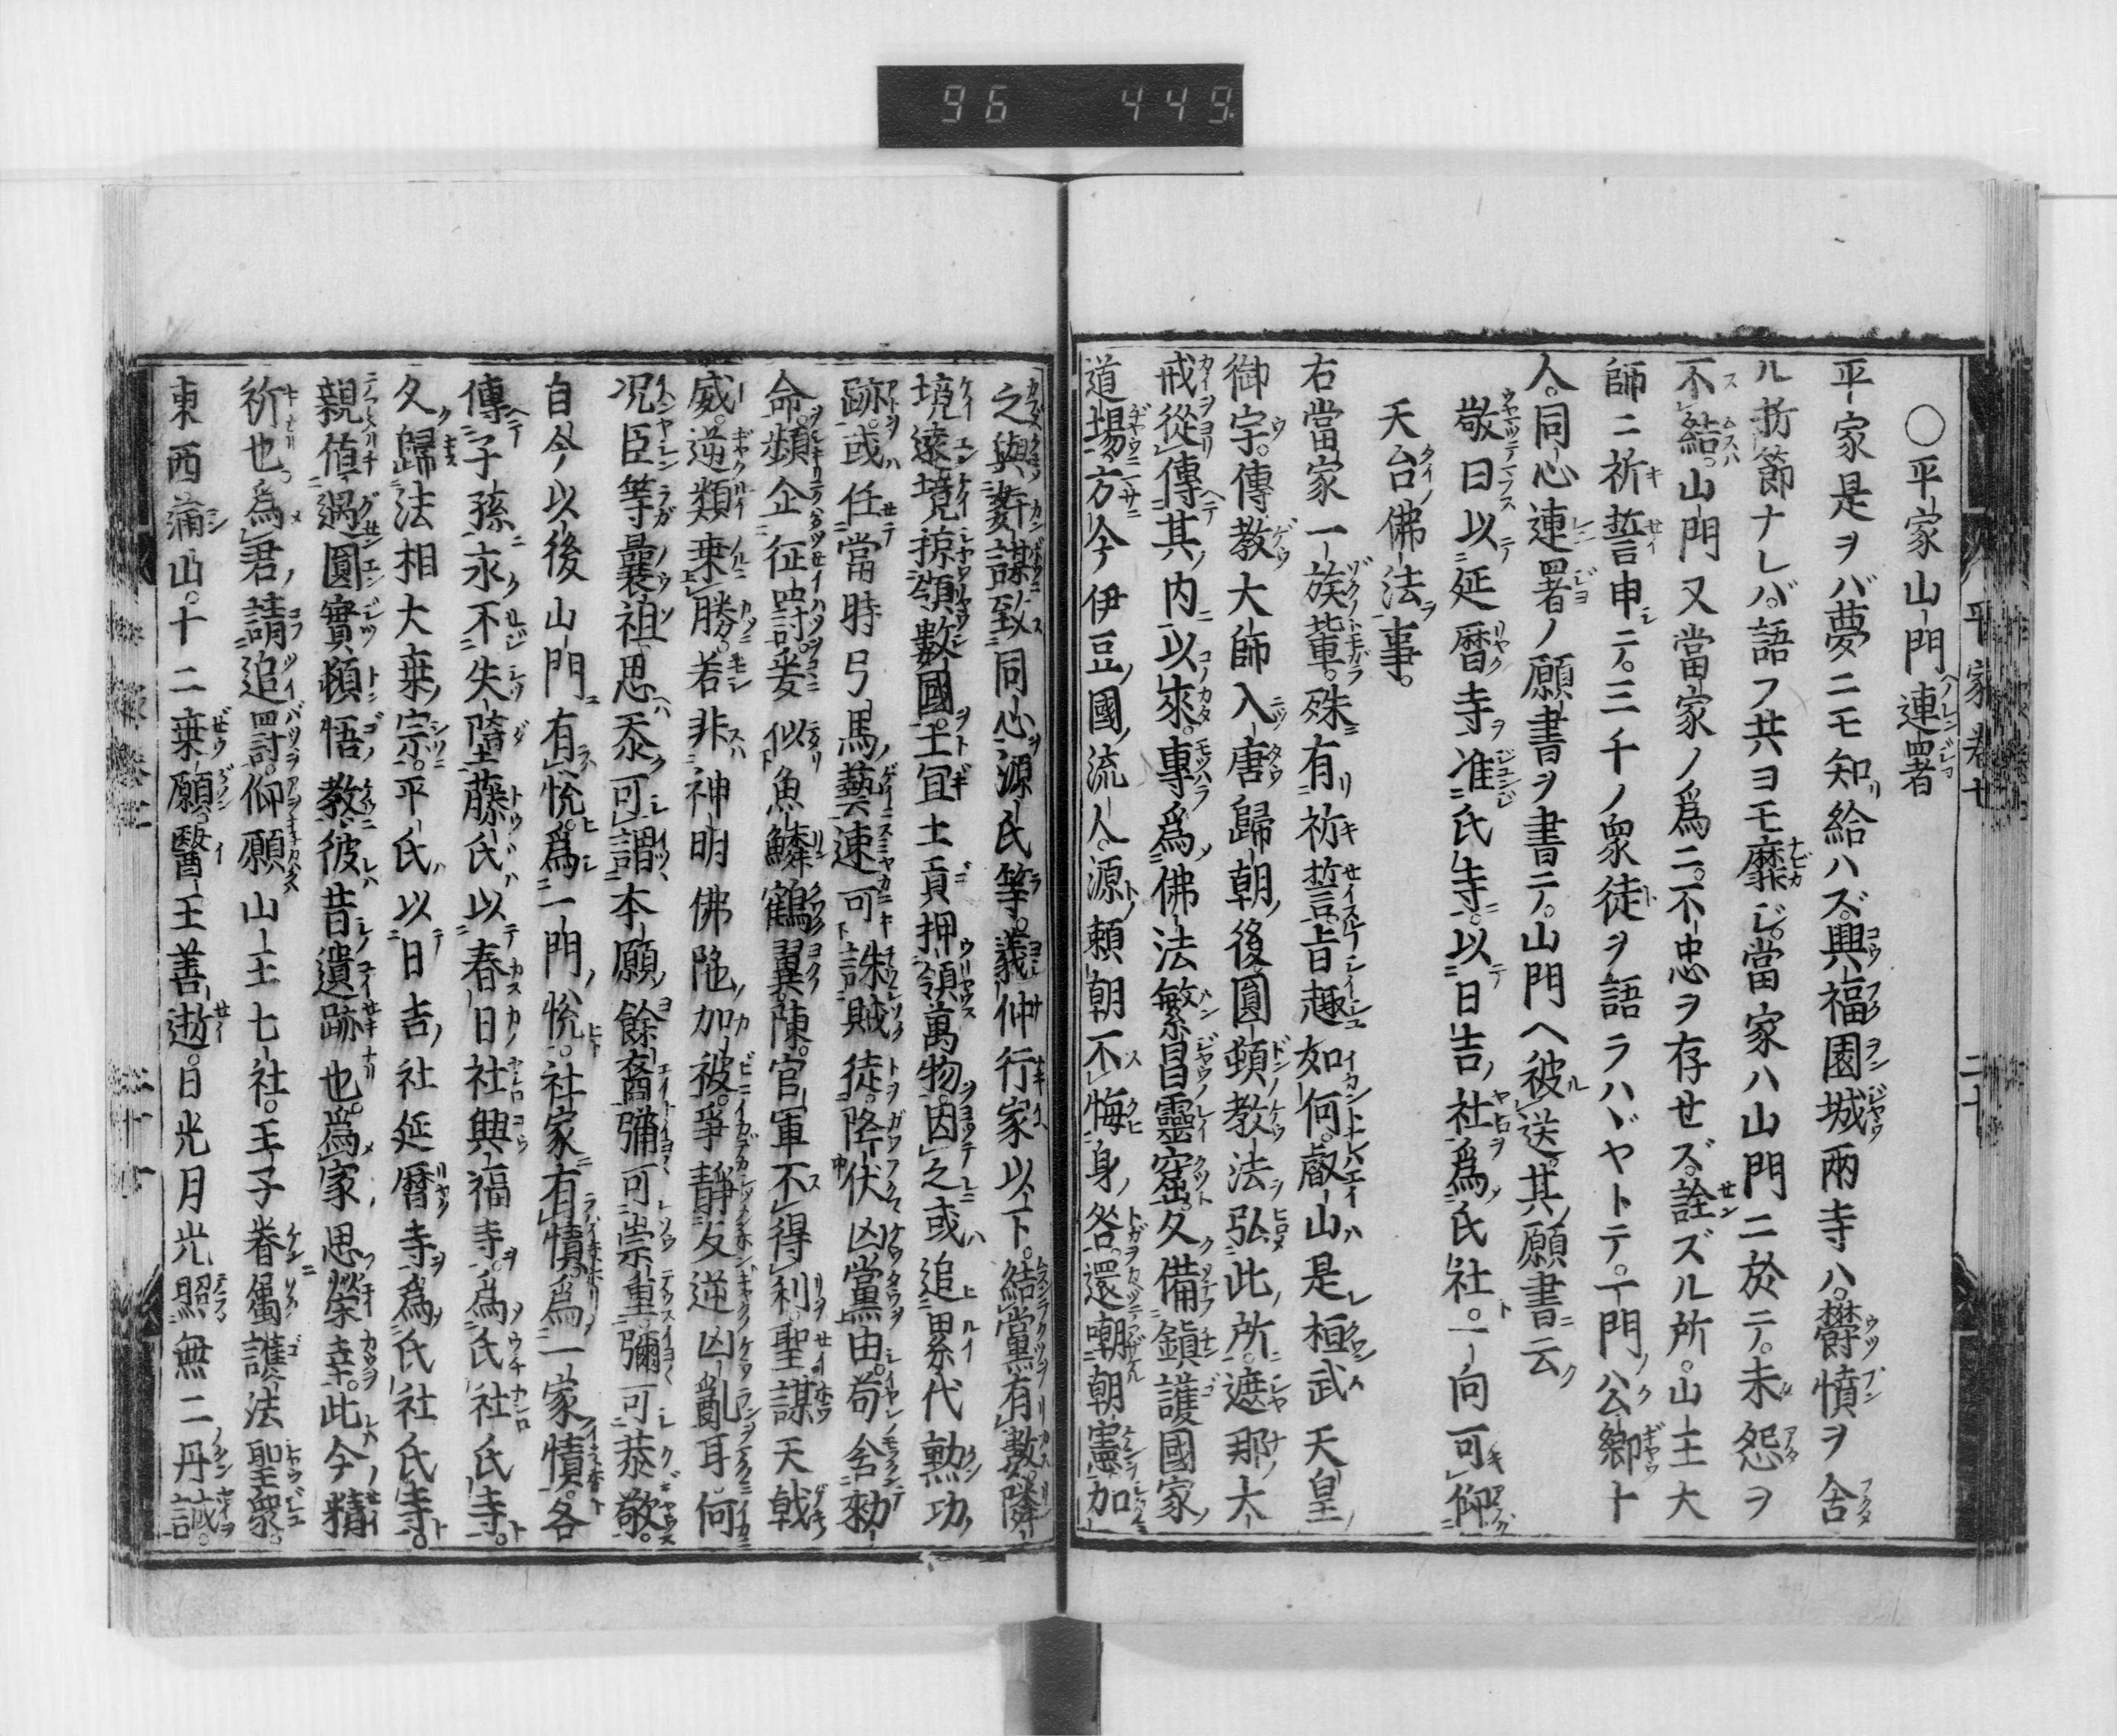 96 449
○平家山門連署
平家是ヲバ夢ニモ知給ハズ。興福園城兩寺ハ。欝憤ヲ含
ル折節ナレバ。語フ共ヨモ靡ジ。當家ハ山門ニ於テ。未怨ヲ
不結。山門又當家ノ爲ニ。不忠ヲ存セズ。詮ズル所。山王大
師ニ祈誓申テ。三千ノ衆徒ヲ語ラハヾヤトテ。一門ノ公卿十
人。同心連署ノ願書ヲ書テ。山門ヘ被送。其願書ニ云ク
敬曰以延曆寺准氏寺。以日吉社爲氏社。一向可仰
天台佛法事。
右當家一族輩。殊有祈誓旨趣如何。叡山是桓武天皇
御宇。傳教大師入唐歸朝後。圓頓教法弘此所。遮那大
戒從傳其内以來。專爲佛法繁昌靈窟。久備鎭護國家
道場。方今伊豆國流人。源頼朝不悔身咎。還嘲朝憲。加
之與姧謀致同心源氏等。義仲行家以下。結黨有數。隣
境遠境掠領數國。土宜土貢押領萬物。因之或追累代勲功
跡。或任當時弓馬藝。速可誅賊徒。降伏凶黨由。苟含勅
命。頻企征罸。爰似魚鱗鶴翼陳。官軍不得利。聖謀天戟
威。逆類乗勝。若非神明佛陁加被。爭靜反逆凶亂耳。何
况臣等曩祖。思忝可謂本願餘裔。彌可崇重。彌可恭敬。
自今以後山門有悦。爲一門悦。社家有憤。爲一家憤。各
傳子孫永不失墮。藤氏以春日社興福寺。爲氏社氏寺。
久歸法相大乗宗。平氏以日吉社延曆寺。爲氏社氏寺。
親値遇圓實頓悟教。彼昔遺跡也。爲家思榮幸。此今精
祈也。爲君請追罸。仰願山王七社。王子眷屬護法聖衆。
東西滿山。十二乗願。醫王善逝。日光月光照無二丹誠。